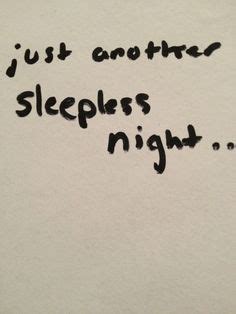 just another
sleepless
night...